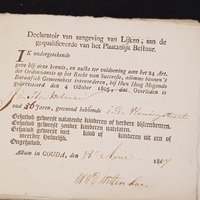 Declaratoir van aangeving van Lijken, aan de
gequalificeerde van het Plaatzelijk Bestuur.
IK ondergeteekende
geve bij deze kennis, en zulks ter voldoening aan het 24 Art.
der Ordonnantie op het Recht van Successie, alömme binnen 't
Bataafsch Gemeenebest Intevorderen, bij Hun Hoog Mogende
gearresteerd den 4 October 1805, dat Overleden is
oud 56 Jaren, gewoond hebbende
Gehuwd geweest nalatende kinderen of verdere descendenten.
Gehuwd geweest zonder kinderen natelaten.
Gehuwd geweest met kind of kinderen uit een of
Ongehuwd.
Actum in GOUDA, den 1807